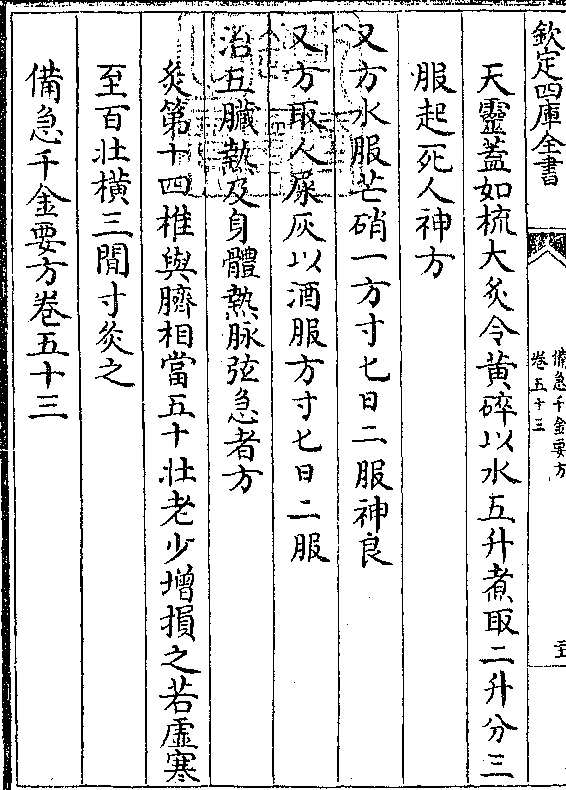 欽定四庫全書
備急千金要方
卷五十三
天靈蓋如梳大炙令黄碎以水五升煮取二升分三
服起死人神方
又方水服芒硝一方寸匕日二服神良
又方取人屎灰以酒服方寸匕日二服
治五臟熱及身體熱脉弦急者方
灸第十四椎與臍相當五十壯老少增損之若虛寒
至百壯橫三間寸灸之
備急千金要方卷五十三